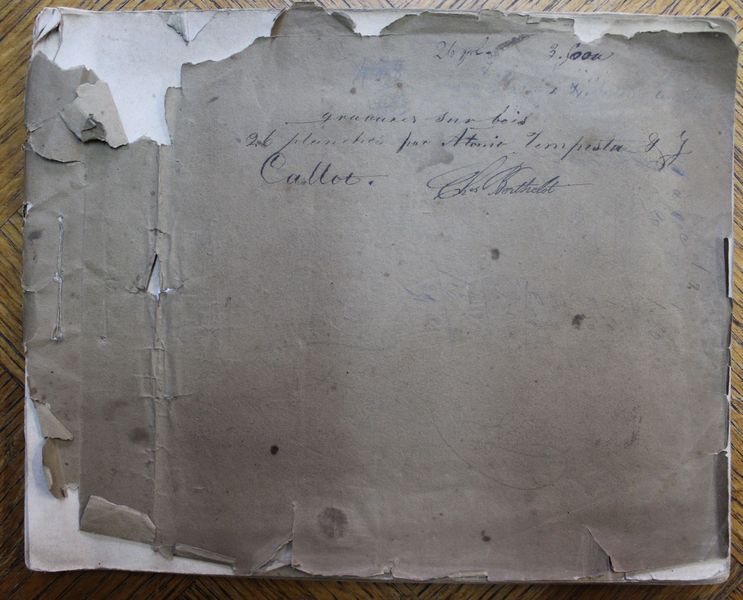 26 pl. 3.
gravures sur bois
26 planches par Atonio Tempesta & J
Callot.
Chs Berthelot